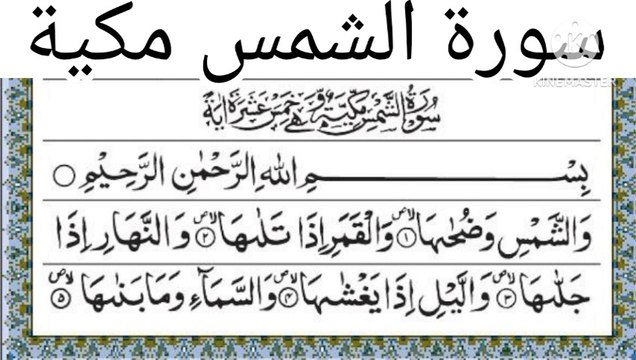 سورة الشمس مكية
KINEMASTER
سُوْرَةُ الشَّمْسِ مَكِّيَّةٌ وَّهِيَ خَمْسَ عَشْرَةَ اٰيَةً
بِسْمِ اللّٰهِ الرَّحْمٰنِ الرَّحِيْمِ
وَالشَّمْسِ وَضُحٰىهَا ۝١ وَالْقَمَرِ اِذَا تَلٰىهَا ۝٢ وَالنَّهَارِ اِذَا
جَلّٰىهَا ۝٣ وَالَّيْلِ اِذَا يَغْشٰىهَا ۝٤ وَالسَّمَآءِ وَمَا بَنٰىهَا ۝٥